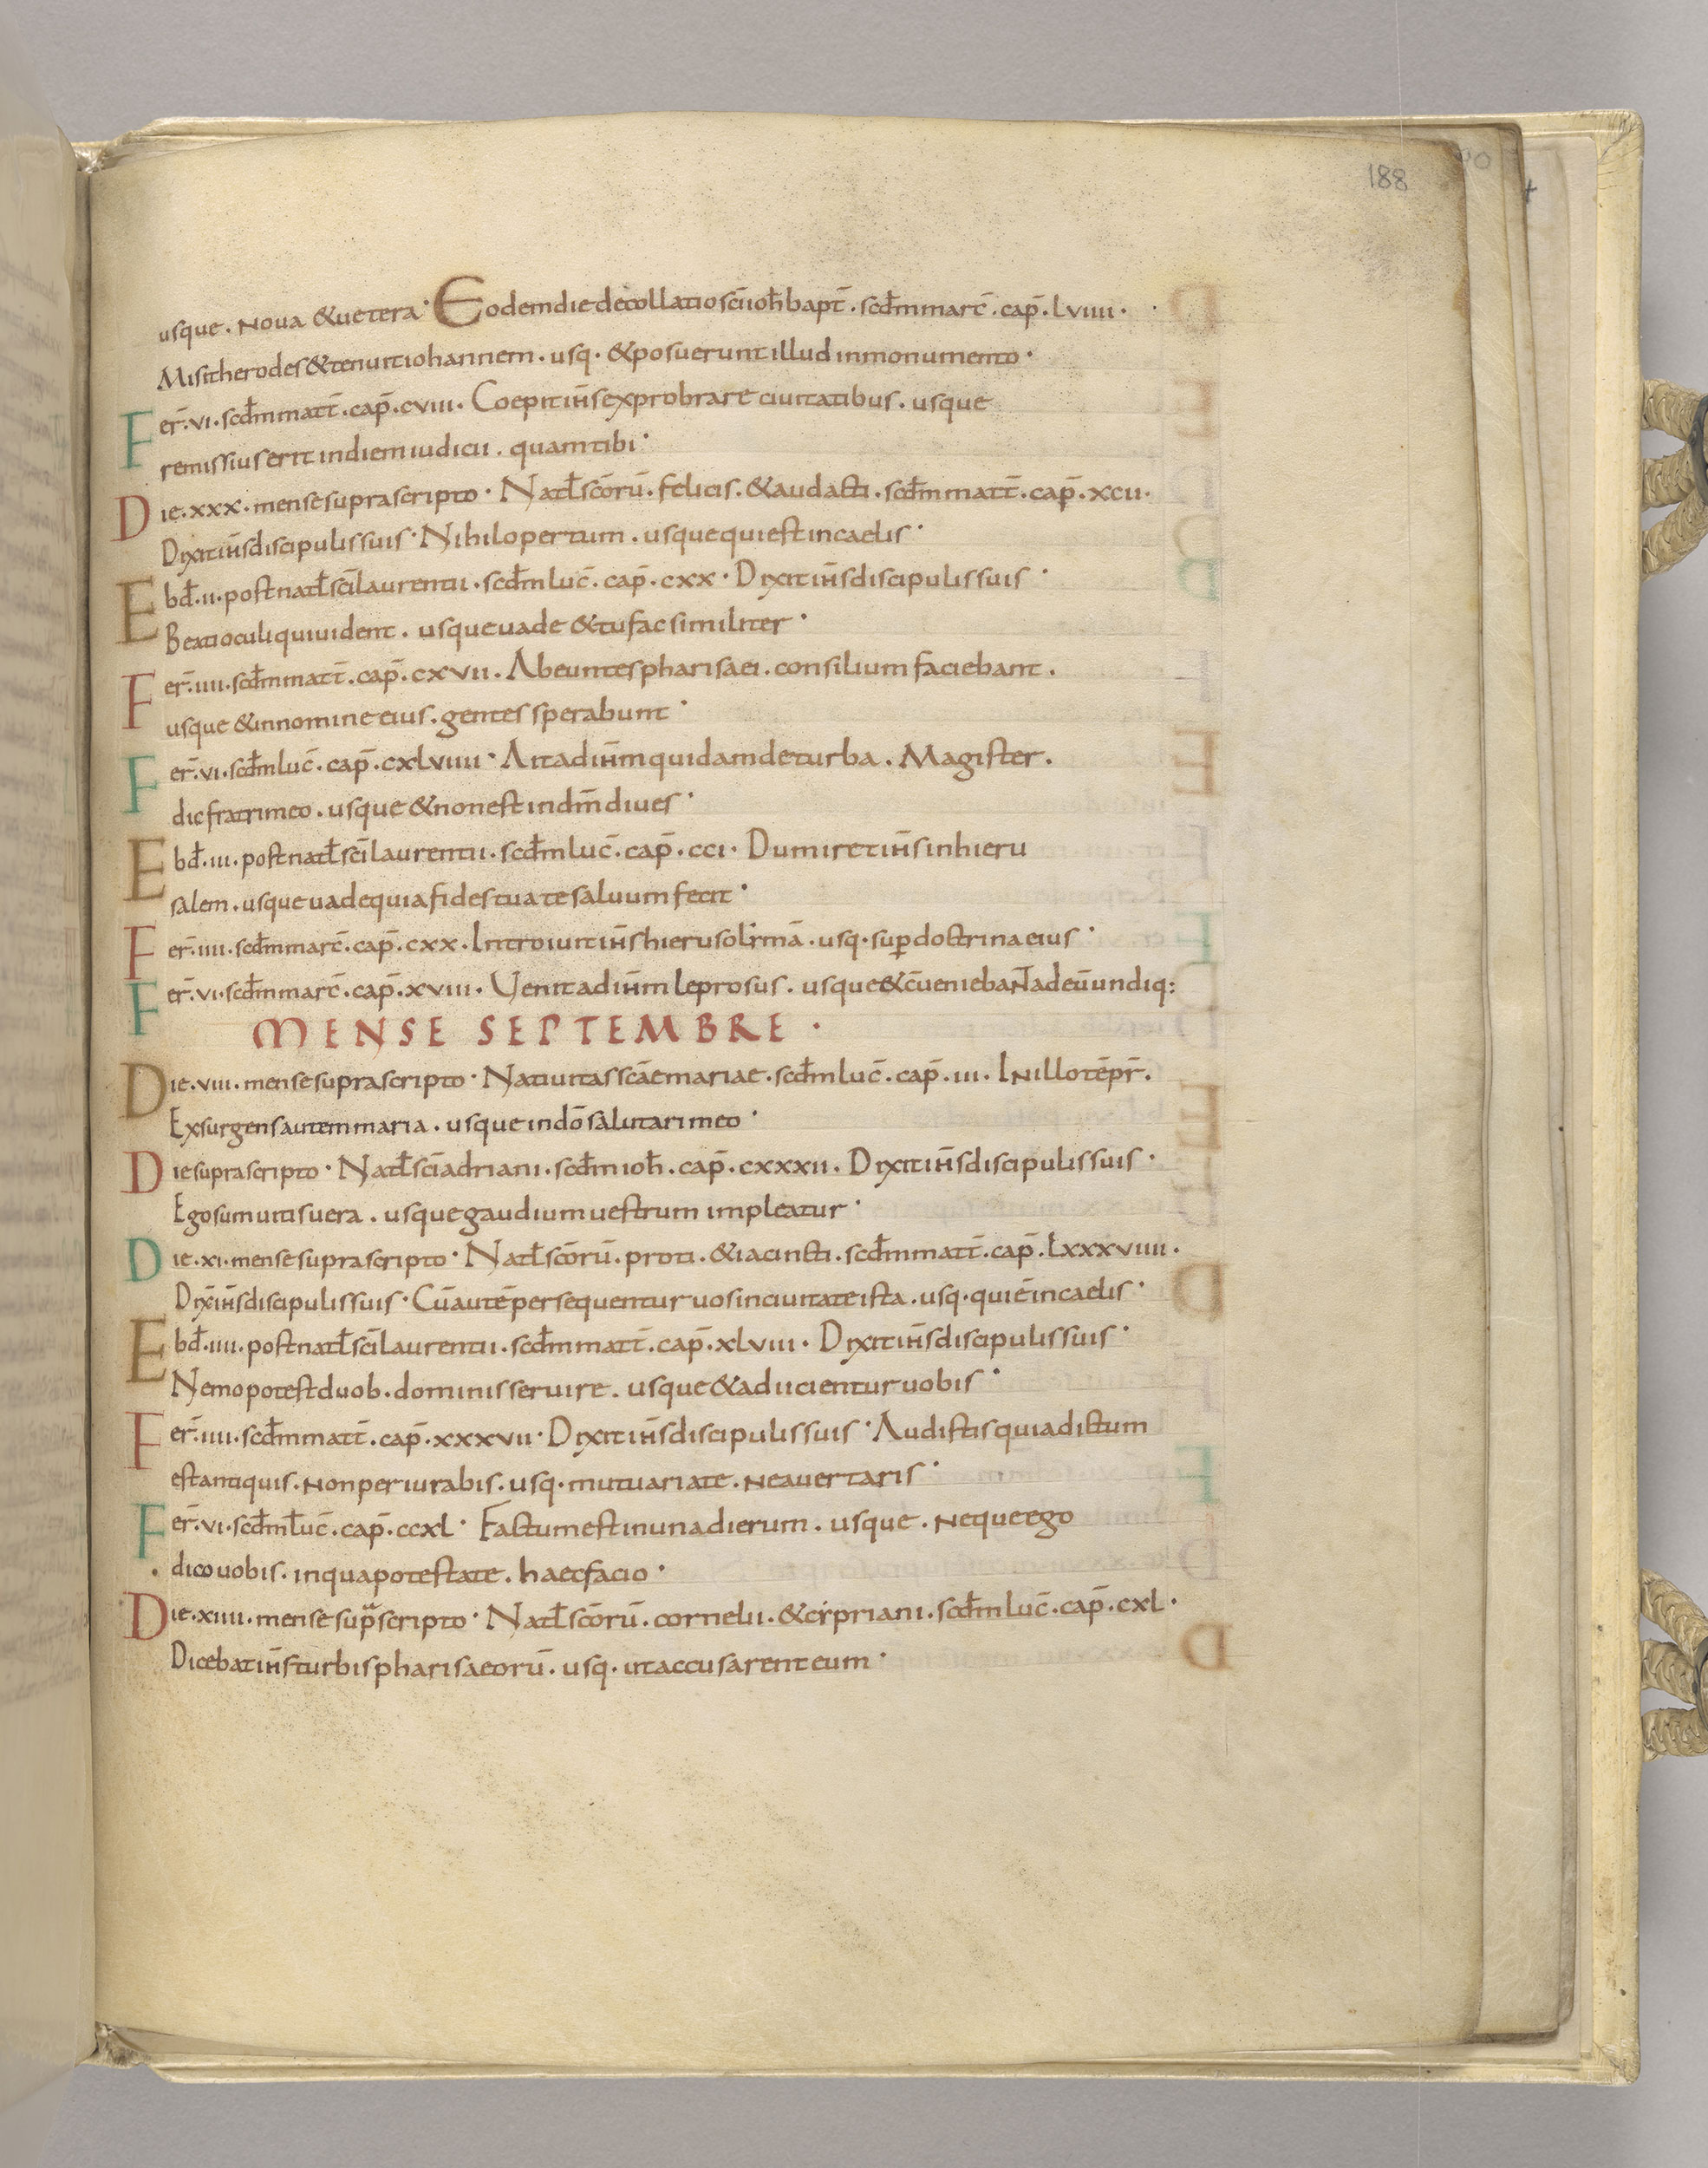 188
usque · Noua & uetera · Eodem die decollatio sc̄i ioh̄ bapt̄ · scđm marc̄ · cap̄ · Lviiii ·
Misit herodes & tenuit iohannem · usq · & posuerunt illud in monumento ·
Fer̄ · vi · scđm matt̄ · cap̄ · cviii · Coepit ih̄s exprobrare ciuitatibus · usque
remissius erit in diem iudicii · quam tibi ·
Die · xxx · mense suprascripto · Natł scōrū · felicis · & audacti · scđm matt̄ · cap̄ · xcii ·
Dixit ih̄s discipulis suis · Nihil opertum · usque qui est in caelis ·
Ebđ · ii · post natł sc̄i laurentii · scđm luc̄ · cap̄ · cxx · Dixit ih̄s discipulis suis ·
Beati oculi qui uident · usque uade & tu fac similiter ·
Fer̄ · iiii · scđm matt̄ · cap̄ · cxvii · Abeuntes pharisaei · consilium faciebant ·
usque & in nomine eius · gentes sperabunt ·
Fer̄ · vi · scđm luc̄ · cap̄ · cxlviiii · Ait ad ih̄m quidam de turba · Magister ·
dic fratri meo · usque & non est in dm̄ diues ·
Ebđ · iii · post natł sc̄i laurentii · scđm luc̄ · cap̄ · cci · Dum iret ih̄s in hieru
salem · usque uade quia fides tua te saluum fecit ·
Fer̄ · iiii · scđm marc̄ · cap̄ · cxx · Introiuit ih̄s hierusolimā · usq · sup doctrina eius ·
Fer̄ · vi · scđm marc̄ · cap̄ · xviii · Uenit ad ih̄m leprosus · usque & cūeniebant ad eū undiq:
MENSE SEPTEMBRE ·
Die · viii · mense suprascripto · Natiuitas scāe mariae · scđm luc̄ · cap̄ · iii · In illo tēpr̄ ·
Exsurgens autem maria · usque in dō salutari meo ·
Die suprascripto · Natł sc̄i adriani · scđm ioh̄ · cap̄ · cxxxii · Dixit ih̄s discipulis suis ·
Ego sum uitis uera · usque gaudium uestrum impleatur ·
Die · xi · mense suprascripto · Natł scōrū · proti · & iacincti · scđm matt̄ · cap̄ · Lxxxviiii ·
Dix̄ ih̄s discipulis suis · Cū autē persequentur uos in ciuitate ista · usq · qui ē in caelis ·
Ebđ · iiii · post natł sc̄i laurentii · scđm matt̄ · cap̄ · xlviii · Dixit ih̄s discipulis suis ·
Nemo potest duob · dominis seruire · usque & adiicientur uobis ·
Fer̄ · iiii · scđm matt̄ · cap̄ · xxxvii · Dixit ih̄s discipulis suis · Audistis quia dictum
est antiquis · Non periurabis · usq · mutuari a te · Ne auertaris ·
Fer̄ · vi · scđm luc̄ · cap̄ · ccxl · Factum est in una dierum · usque · Neque ego
dico uobis · in qua potestate · haec facio ·
Die · xiiii · mense sup̄scripto · Natł scōrū · cornelii · & cipriani · scđm luc̄ · cap̄ · cxl ·
Dicebat ih̄s turbis pharisaeorū · usq · ut accusarent eum ·